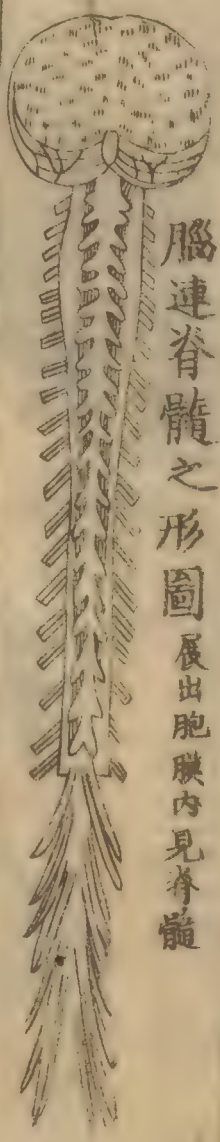 腦連脊髓之形圖
展出胞膜内見脊髓